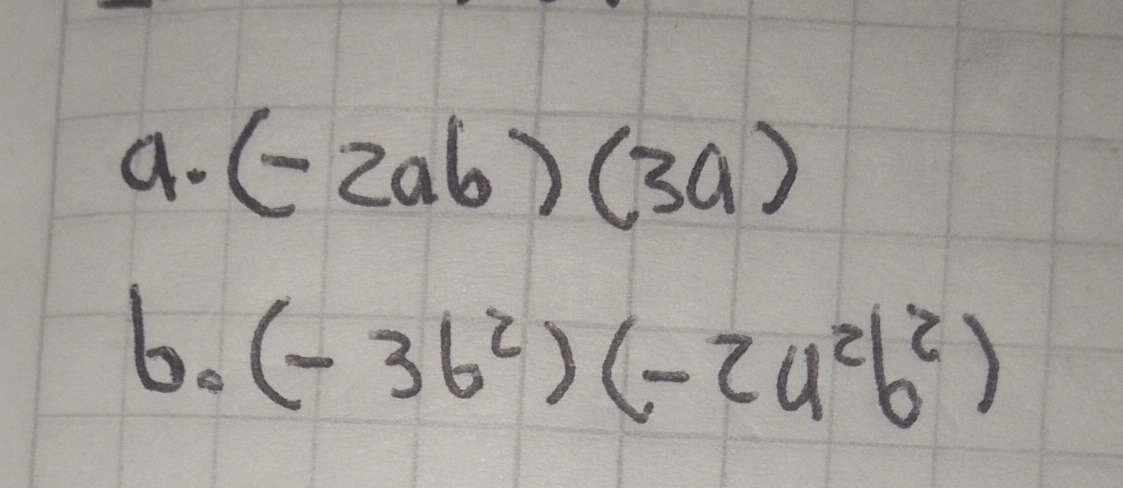 a. (-2ab) (3a)
b. (-3b²) (-2a²b²)